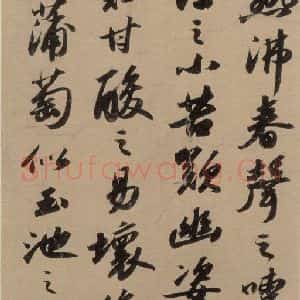 沸春聲之嘈
之小苦歎幽姿
甘酸之易壞
蒲萄似玉池之
Shufawang.cn